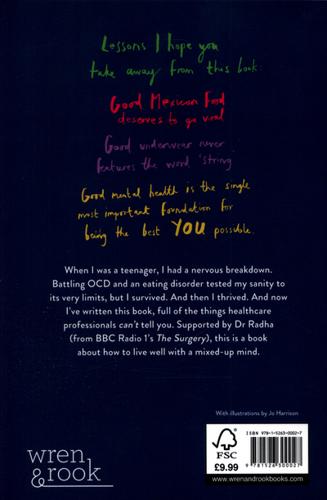 Lessons I hope you
take away from this book:
Good Mexican Food
deserves to go viral
Good underwear never
features the word 'string'
Good mental health is the single
most important foundation for
being the best YOU possible.
When I was a teenager, I had a nervous breakdown.
Battling OCD and an eating disorder tested my sanity to
its very limits, but I survived. And then I thrived. And now
I've written this book, full of the things healthcare
professionals can't tell you. Supported by Dr Radha
(from BBC Radio 1's The Surgery), this is a book
about how to live well with a mixed-up mind.
With illustrations by Jo Harrison
wren
&rook
FSC
£9.99
ISBN 978-1-5263-0002-7
9781526300027
www.wrenandrookbooks.com